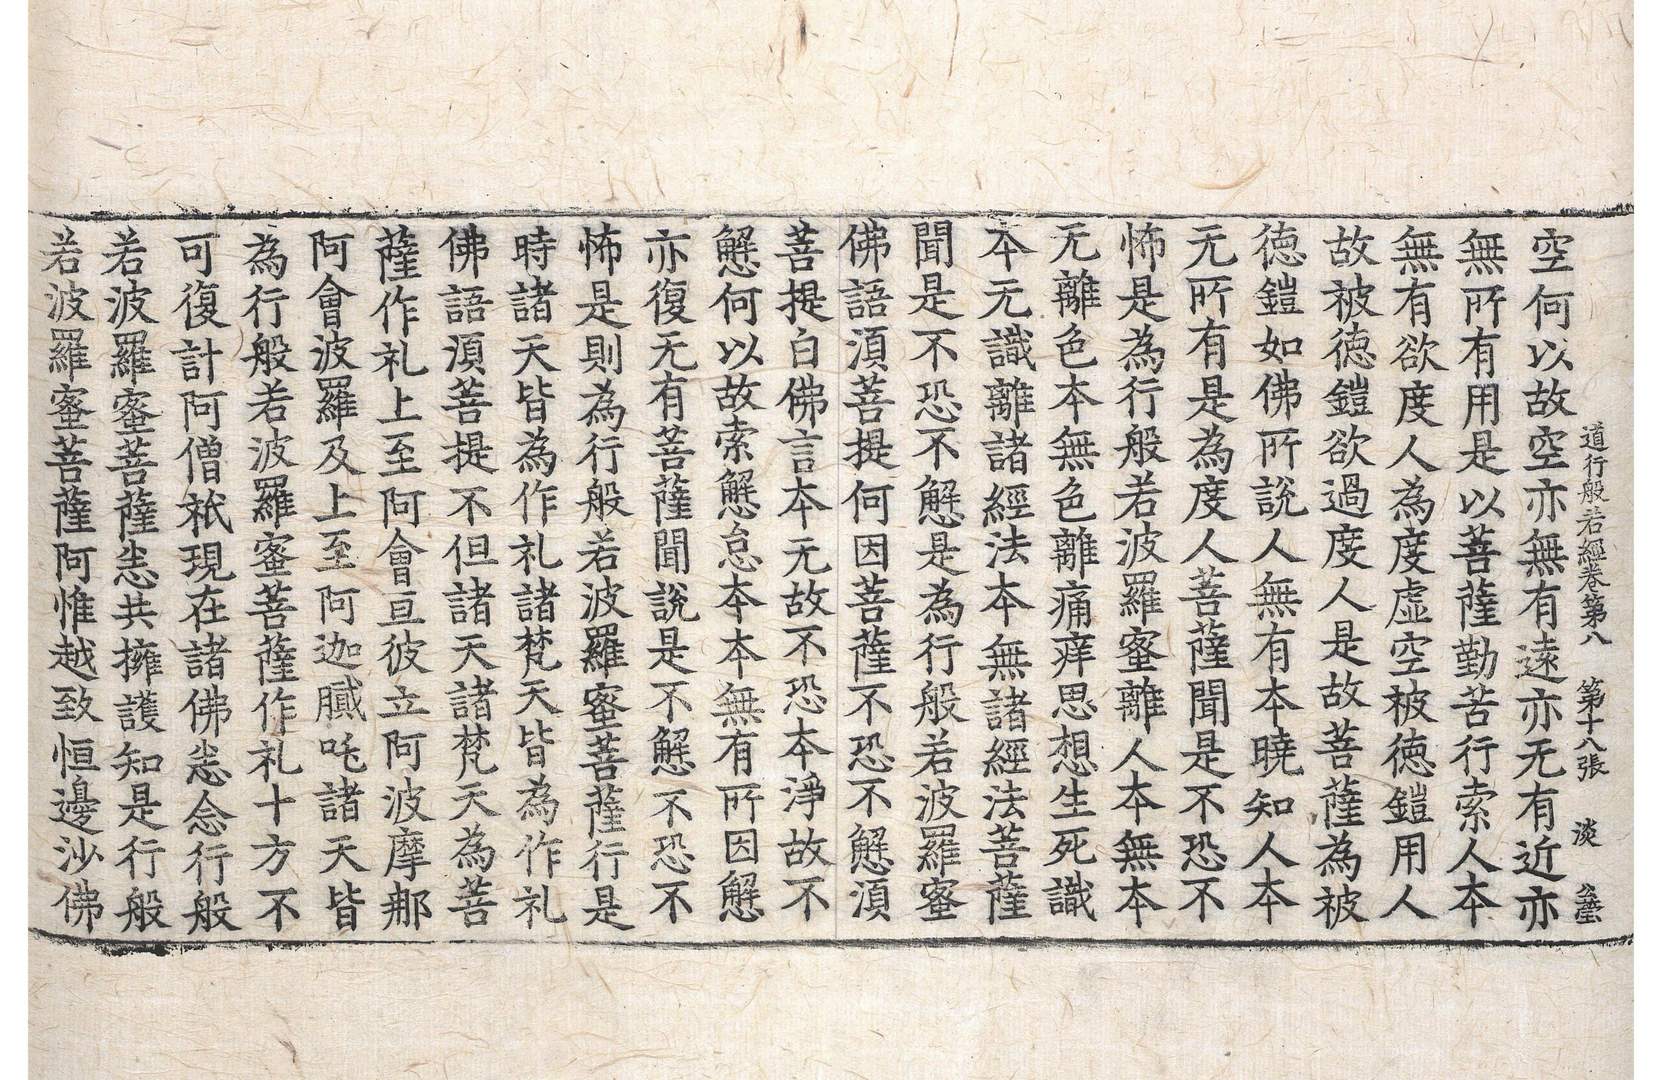 道行般若經卷第八 第十八張 淡
空何以故空亦無有遠亦无有近亦
無所有用是以菩薩勤苦行索人本
無有欲度人為度虛空被德鎧用人
故被德鎧欲過度人是故菩薩為被
德鎧如佛所說人無有本曉知人本
无所有是為度人菩薩聞是不恐不
怖是為行般若波羅蜜離人本無本
无離色本無色離痛痒思想生死識
本无識離諸經法本無諸經法菩薩
聞是不恐不懈是為行般若波羅蜜
佛語須菩提何因菩薩不恐不懈須
菩提白佛言本无故不恐本淨故不
懈何以故索懈怠本本無有所因懈
亦復无有菩薩聞說是不懈不恐不
怖是則為行般若波羅蜜菩薩行是
時諸天皆為作礼諸梵天皆為作礼
佛語須菩提不但諸天諸梵天為菩
薩作礼上至阿會亘彼立阿波摩那
阿會波羅及上至阿迦膩吒諸天皆
為行般若波羅蜜菩薩作礼十方不
可復計阿僧祇現在諸佛悉念行般
若波羅蜜菩薩悉共擁護知是行般
若波羅蜜菩薩阿惟越致恒邊沙佛